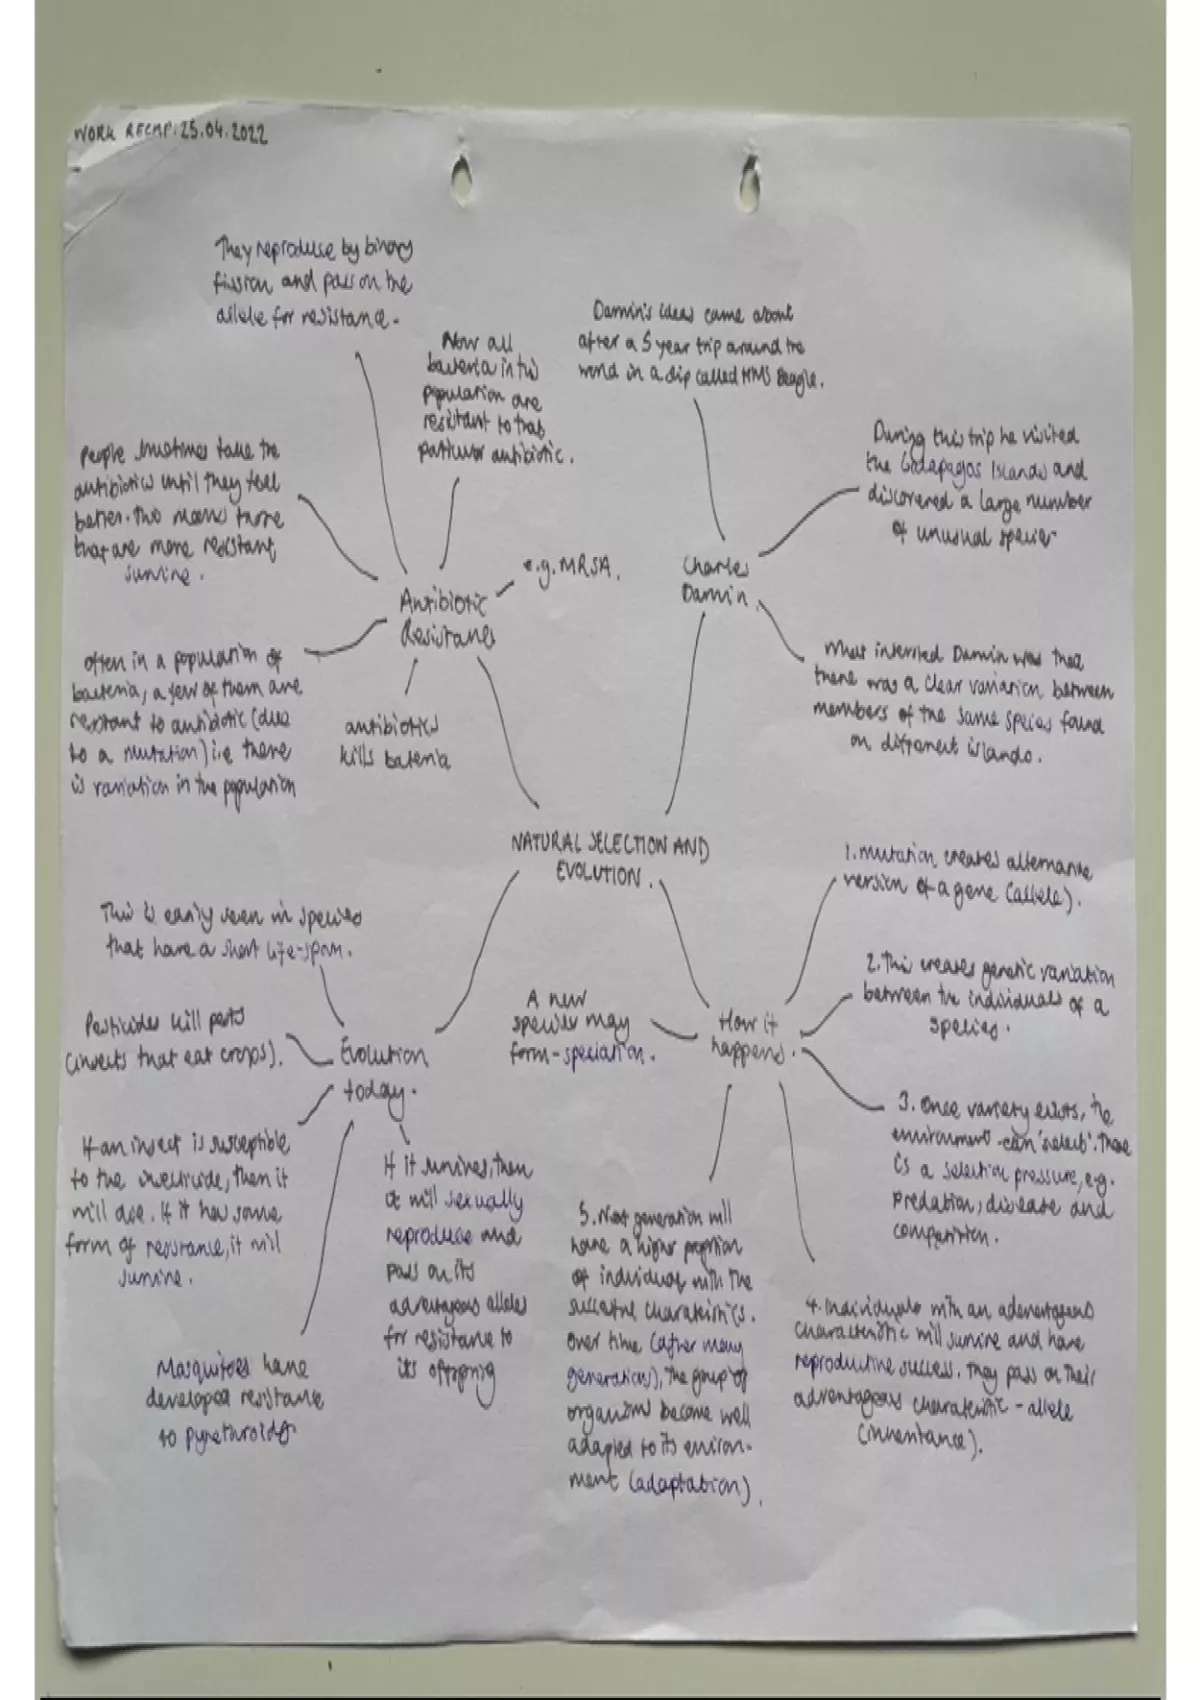 WORK RECAP: 25.04.2022
They reproduce by binary
fission and pass on the
allele for resistance.
Now all
bacteria in this
population are
resistant to that
particular antibiotic.
Darwin's ideas came about
after a 5 year trip around the
world in a ship called HMS Beagle.
During this trip he visited
the Galapagos Islands and
discovered a large number
of unusual species
People sometimes take the
antibiotics until they feel
better. This means those
that are more resistant
survive.
e.g. MRSA.
Charles
Darwin.
Antibiotic
Resistance
Often in a population of
bacteria, a few of them are
resistant to antibiotic (due
to a mutation) i.e there
is variation in the population
antibiotics
kills bacteria
What interested Darwin was that
there was a clear variation between
members of the same species found
on different islands.
NATURAL SELECTION AND
EVOLUTION.
1. Mutation creates alternative
version of a gene (allele).
This is easily seen in species
that have a short life-span.
2. This creates genetic variation
between the individuals of a
species.
A new
species may
form - speciation.
How it
happens.
Pesticides kill pests
(insects that eat crops).
Evolution
today.
3. Once variety exists, the
environment can 'select'. There
is a selection pressure, e.g.
predation, disease and
competition.
If an insect is susceptible
to the insecticide, then it
will die. If it has some
form of resistance, it will
survive.
If it survives, then
it will sexually
reproduce and
pass on its
advantageous alleles
for resistance to
its offspring
5. Next generation will
have a higher proportion
of individuals with the
successful characteristics.
Over time (after many
generations), the group of
organisms become well
adapted to its environ-
ment (adaptation).
4. Individuals with an advantageous
characteristic will survive and have
reproductive success. They pass on their
advantageous characteristic - allele
(inheritance).
Mosquitoes have
developed resistance
to pyrethroids